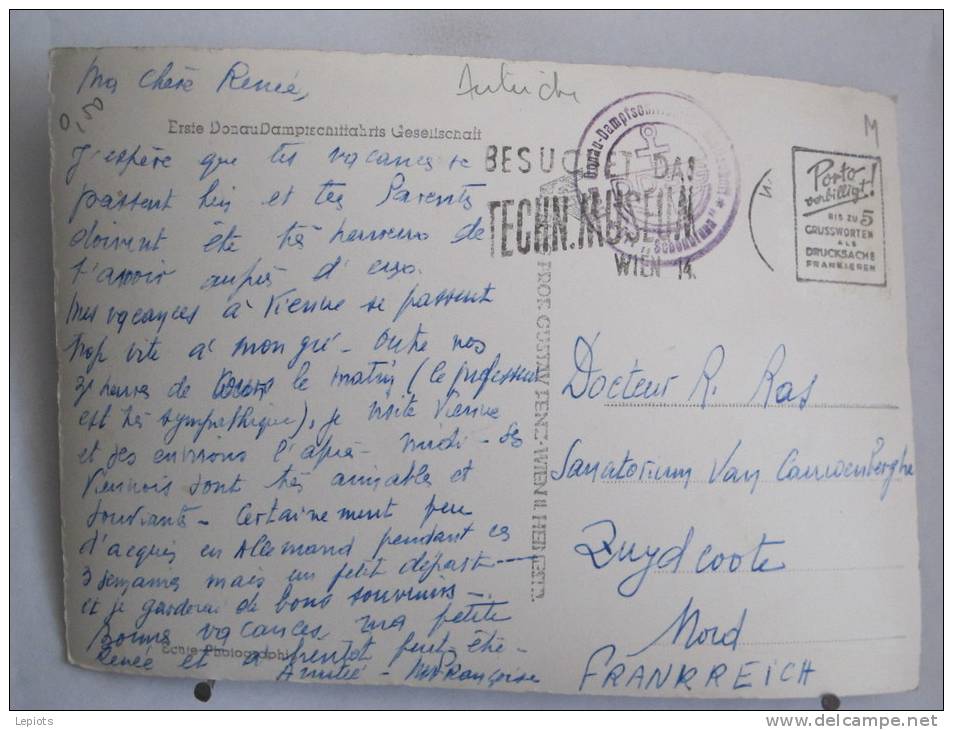 Ma chère Renée,
Autriche
0,50
M
Erste DonauDampfschiffahrts Gesellschaft
J'espère que tes vacances se
passent bien et tes Parents
doivent être très heureux de
t'avoir auprès d'eux.
Mes vacances à Vienne se passent
trop vite à mon gré - Outre nos
3 heures de cours le matin (le professeur
est très sympathique), je visite Vienne
et ses environs l'après-midi - Les
Viennois sont très aimables et
souriants - Certainement peu
d'acquis en Allemand pendant ces
3 semaines mais un petit départ
et je garderai de bons souvenirs -
Bonnes vacances, ma petite
Renée et à bientôt peut être -
Amitié - M Françoise
Echte Photographie
BESUCHET DAS
TECHN. MUSEUM
WIEN 14.
Donau-Dampfschiff
"Schönbrunn"
Porto
verbilligt!
BIS ZU 5
GRUSSWORTEN
ALS
DRUCKSACHE
FRANKIEREN
PROF. GUSTAV LENZ-WIEN II.
Docteur R. Ras
Sanatorium Van Cauwenberghe
Zuydcoote
Nord
FRANKREICH
Lepiots
www.delcampe.net